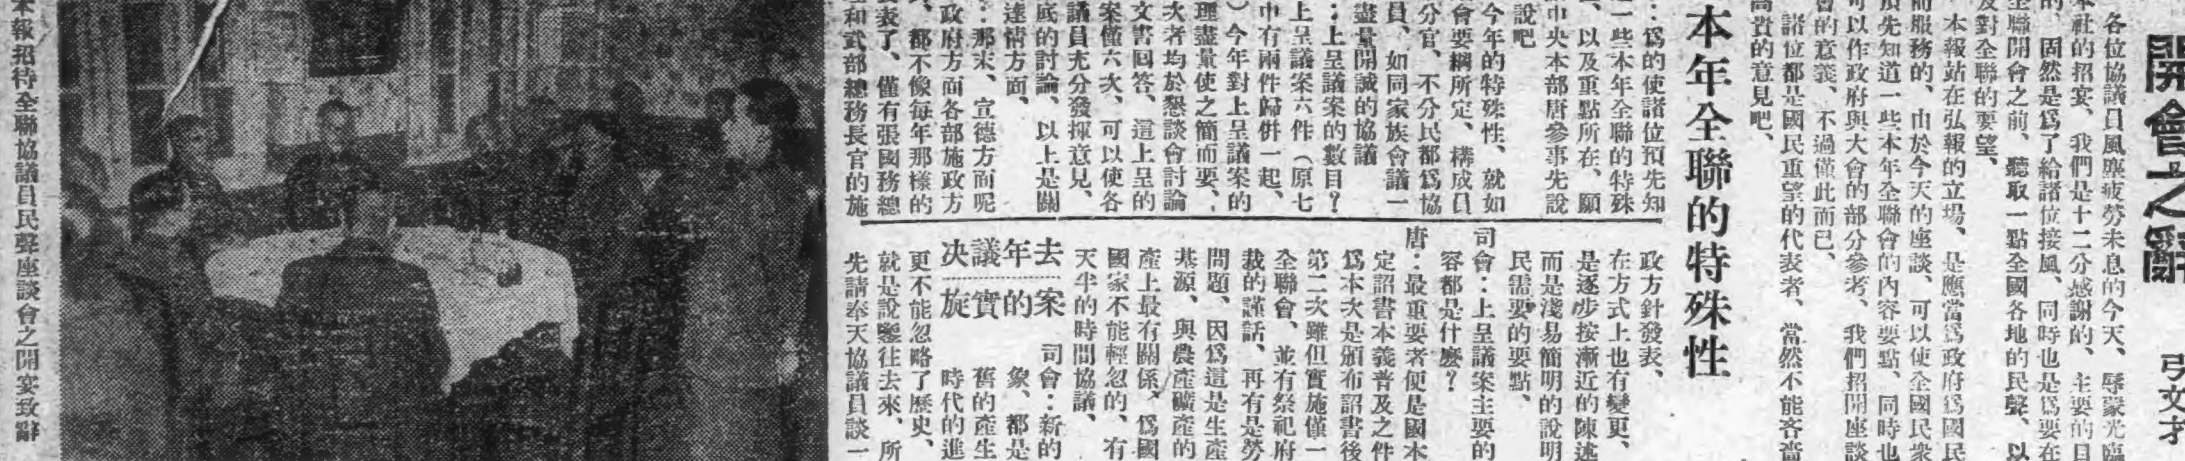 開會之辭
弓文才
各位協議員風塵疲勞未息的今天、辱蒙光臨
本社的招宴、我們是十二分感謝的、主要的目
的、固然是爲了給諸位接風、同時也是爲要在
全聯開會之前、聽取一點全國各地的民聲、以
及對全聯的要望、
本報站在弘報的立場、是應當爲政府爲國民
而服務的、由於今天的座談、可以使全國民衆
預先知道一些本年全聯會的內容要點、同時也
可以作政府與大會的部分參考、我們招開座談
會的意義、不過僅此而已、
諸位都是國民重望的代表者、當然不能吝嗇
高貴的意見吧、
本年全聯的特殊性
：爲的使諸位預先知
一些本年全聯的特殊
、以及重點所在、願
中央本部唐參事先說
說吧
今年的特殊性、就如
會要綱所定、構成員
分官、不分民都爲協
員、如同家族會議一
盡量開誠的協議
：上呈議案的數目？
上呈議案六件（原七
中有兩件歸併一起、
）今年對上呈議案的
理盡量使之簡而要、
次者均於懇談會討論
文書回答、這上呈的
案僅六次、可以使各
議員充分發揮意見、
底的討論、以上是關
達情方面、
：那末、宣德方面呢
政府方面各部施政方
、都不像每年那樣的
表了、僅有張國務總
和武部總務長官的施
政方針發表、
在方式上也有變更、
是逐步按漸近的陳述
而是淺易簡明的說明
民需要的要點、
司會：上呈議案主要的
容都是什麼？
唐：最重要者便是國本
定詔書本義普及之件
爲本次是頒布詔書後
第二次雖但實施僅一
全聯會、並有祭祀府
裁的謹話、再有是勞
問題、因爲這是生產
基源、與農產礦產的
產上最有關係、爲國
國家不能輕忽的、有
天半的時間協議、
去年議決
案的實施
司會：新的
象、都是
舊的產生
時代的進
更不能忽略了歷史、
就是說鑒往去來、所
先請奉天協議員談一
本報招待全聯協議員民聲座談會之開宴致辭